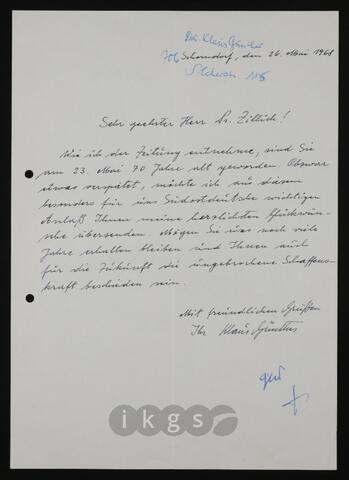 Dr. Klaus Günther
706 Schorndorf, den 26. Mai 1968
Silcherstr. 115
Sehr geehrter Herr Dr. Zillich!
Wie ich der Zeitung entnehme, sind Sie
am 23. Mai 70 Jahre alt geworden. Obwohl
etwas verspätet, möchte ich aus diesem
besonders für uns Südostdeutsche wichtigen
Anlaß Ihnen meine herzlichsten Glückwün-
sche übersenden. Mögen Sie uns noch viele
Jahre erhalten bleiben und Ihnen auch
für die Zukunft die ungebrochene Schaffens-
kraft beschieden sein.
Mit freundlichen Grüßen
Ihr Klaus Günther
ikgs